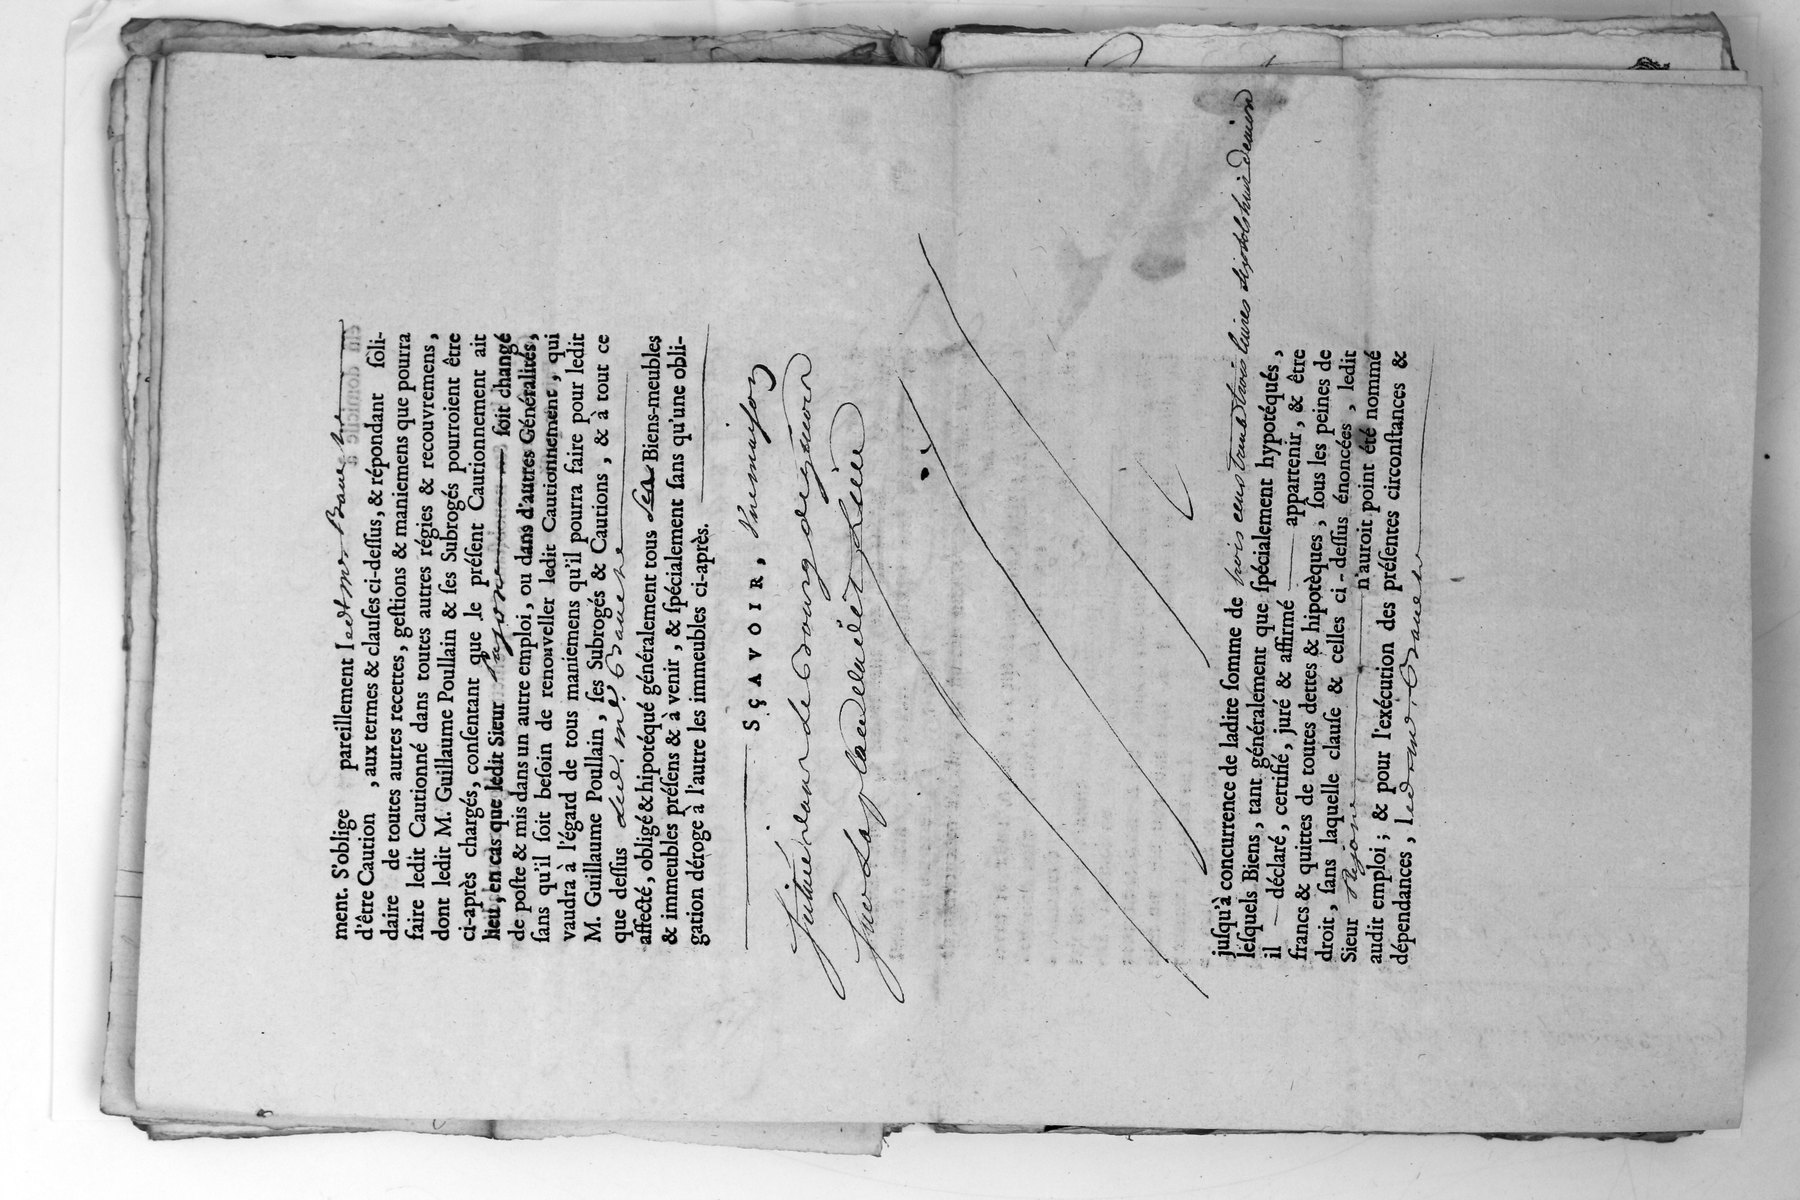 ment. S'oblige pareillement ledt mr Bauche
d'être Caution , aux termes & clauſes ci-deſſus, & répondant ſoli-
daire de toutes autres recettes, geſtions & maniemens que pourra
faire ledit Cautionné dans toutes autres régies & recouvremens,
dont ledit M. Guillaume Poullain & ſes Subrogés pourroient être
ci-après chargés, conſentant que le préſent Cautionnement ait
lieu, en cas que ledit Sieur Rejone ſoit changé
de poſte & mis dans un autre emploi, ou dans d'autres Généralités,
ſans qu'il ſoit beſoin de renouveller ledit Cautionnement, qui
vaudra à l'égard de tous maniemens qu'il pourra faire pour ledit
M. Guillaume Poullain, ſes Subrogés & Cautions, & à tout ce
que deſſus led. mr Bauche
affecté, obligé & hipotéqué généralement tous ses Biens-meubles
& immeubles préſens & à venir, & ſpécialement ſans qu'une obli-
gation déroge à l'autre les immeubles ci-après.
SÇAVOIR, Une maison
Située de Bourg de
Sur la place
juſqu'à concurrence de ladite ſomme de trois cens trente trois livres six sols huit deniers
leſquels Biens, tant généralement que ſpécialement hypotéqués,
il déclaré, certifié, juré & affirmé appartenir, & être
francs & quittes de toutes dettes & hipotèques, ſous les peines de
droit, ſans laquelle clauſe & celles ci-deſſus énoncées, ledit
Sieur Rejone n'auroit point été nommé
audit emploi; & pour l'exécution des préſentes circonſtances &
dépendances, led mr Bauche